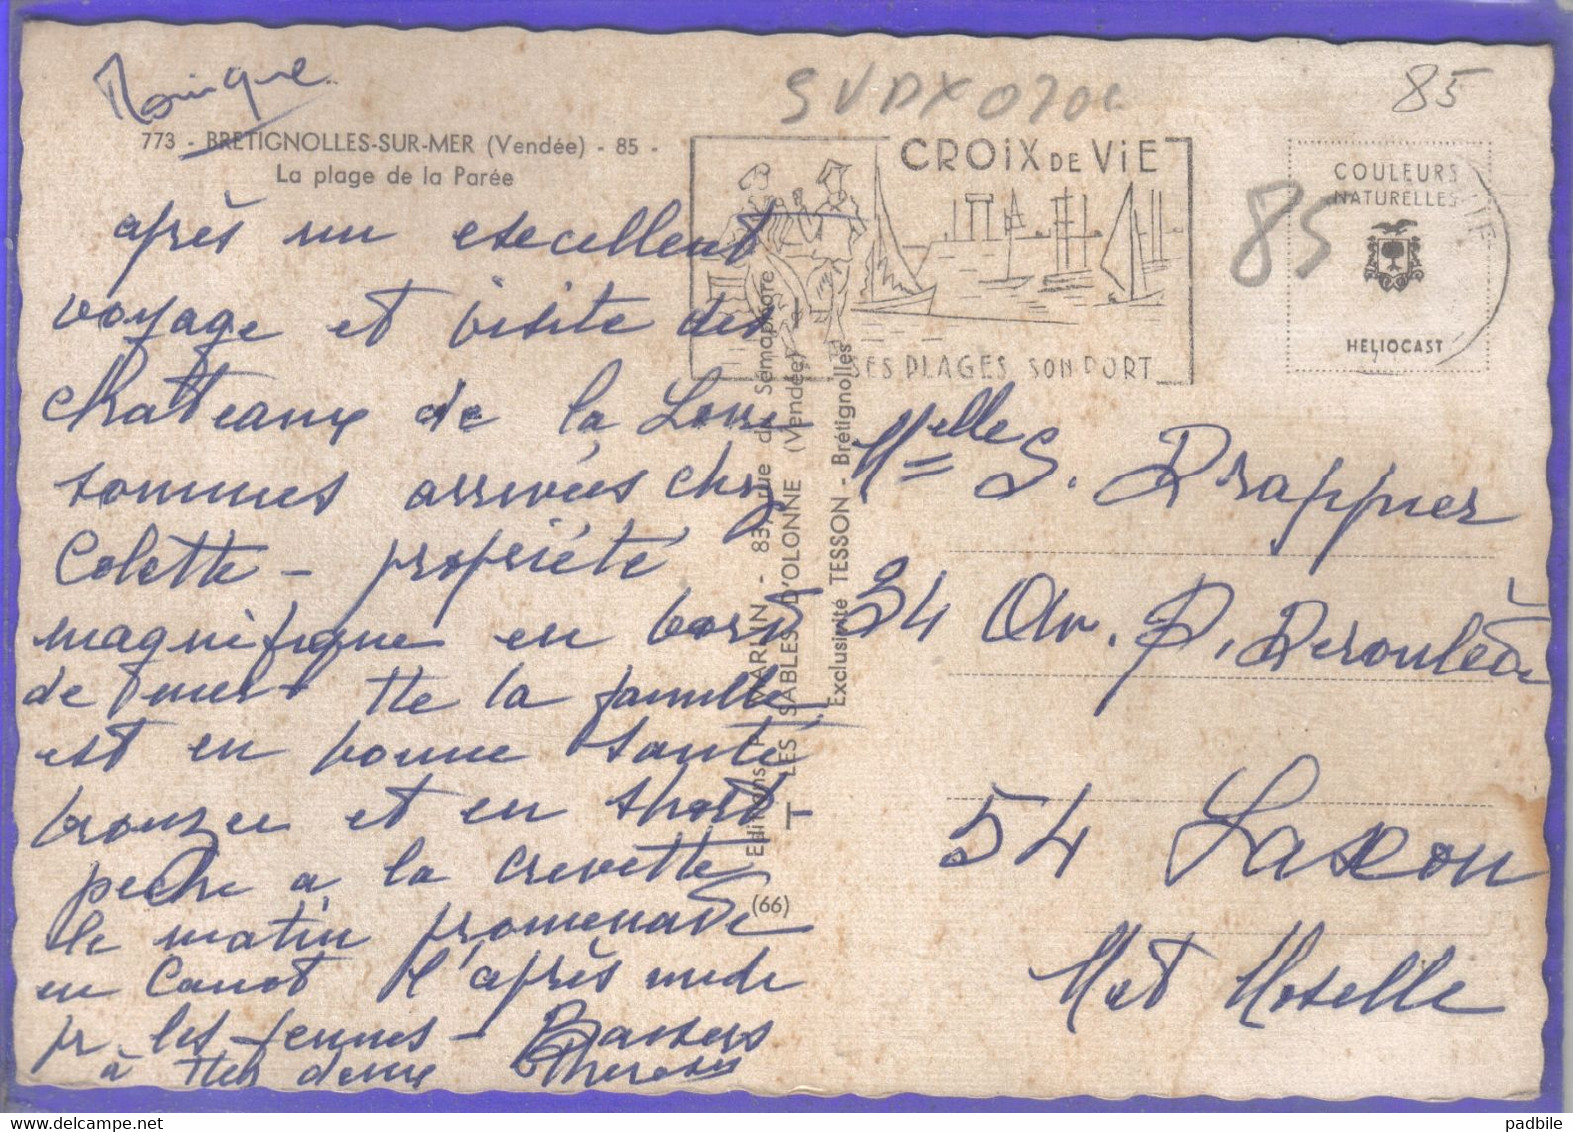 Monique
773 - BRETIGNOLLES-SUR-MER (Vendée) - 85 -
La plage de la Parée
après un excellent
voyage et visite des
chateaux de la Loire
sommes arrivées chez
Colette - propriété
magnifique en bord
de mer - tte la famille
est en bonne santé
bronzee et en short
peche a la crevette
le matin promenade
en canot l'après midi
pr les jeunes - Baisers
à ttes deux Therese
CROIX DE VIE
SES PLAGES SON PORT
85
85
COULEURS
NATURELLES
HELIOCAST
Editions P. VARLIN - 83, rue du Sémaphore
T LES SABLES D'OLONNE (Vendée)
Exclusivité TESSON - Brétignolles
(66)
Melle S. Drappier
34 Av. P. Deroulède
54 Laxou
Mt Moselle
padbile